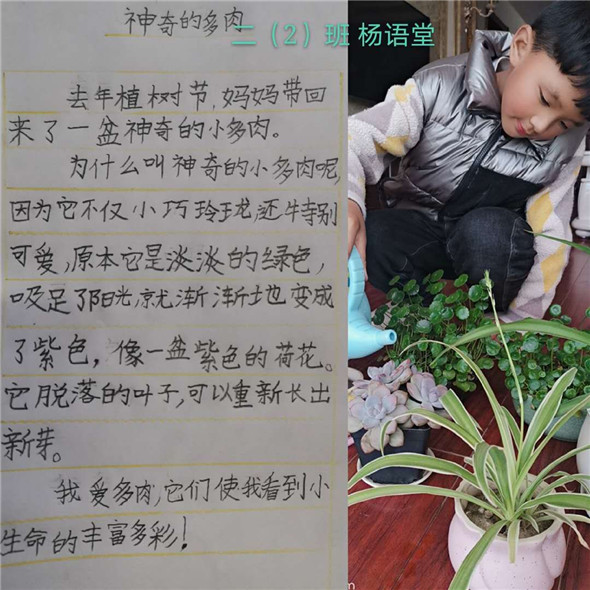 神奇的多肉
二（2）班 杨语堂
去年植树节,妈妈带回
来了一盆神奇的小多肉。
为什么叫神奇的小多肉呢,
因为它不仅小巧玲珑,还特别
可爱,原本它是淡淡的绿色,
吸足了阳光,就渐渐地变成
了紫色，像一盆紫色的荷花。
它脱落的叶子,可以重新长出
新芽。
我爱多肉,它们使我看到小
生命的丰富多彩!